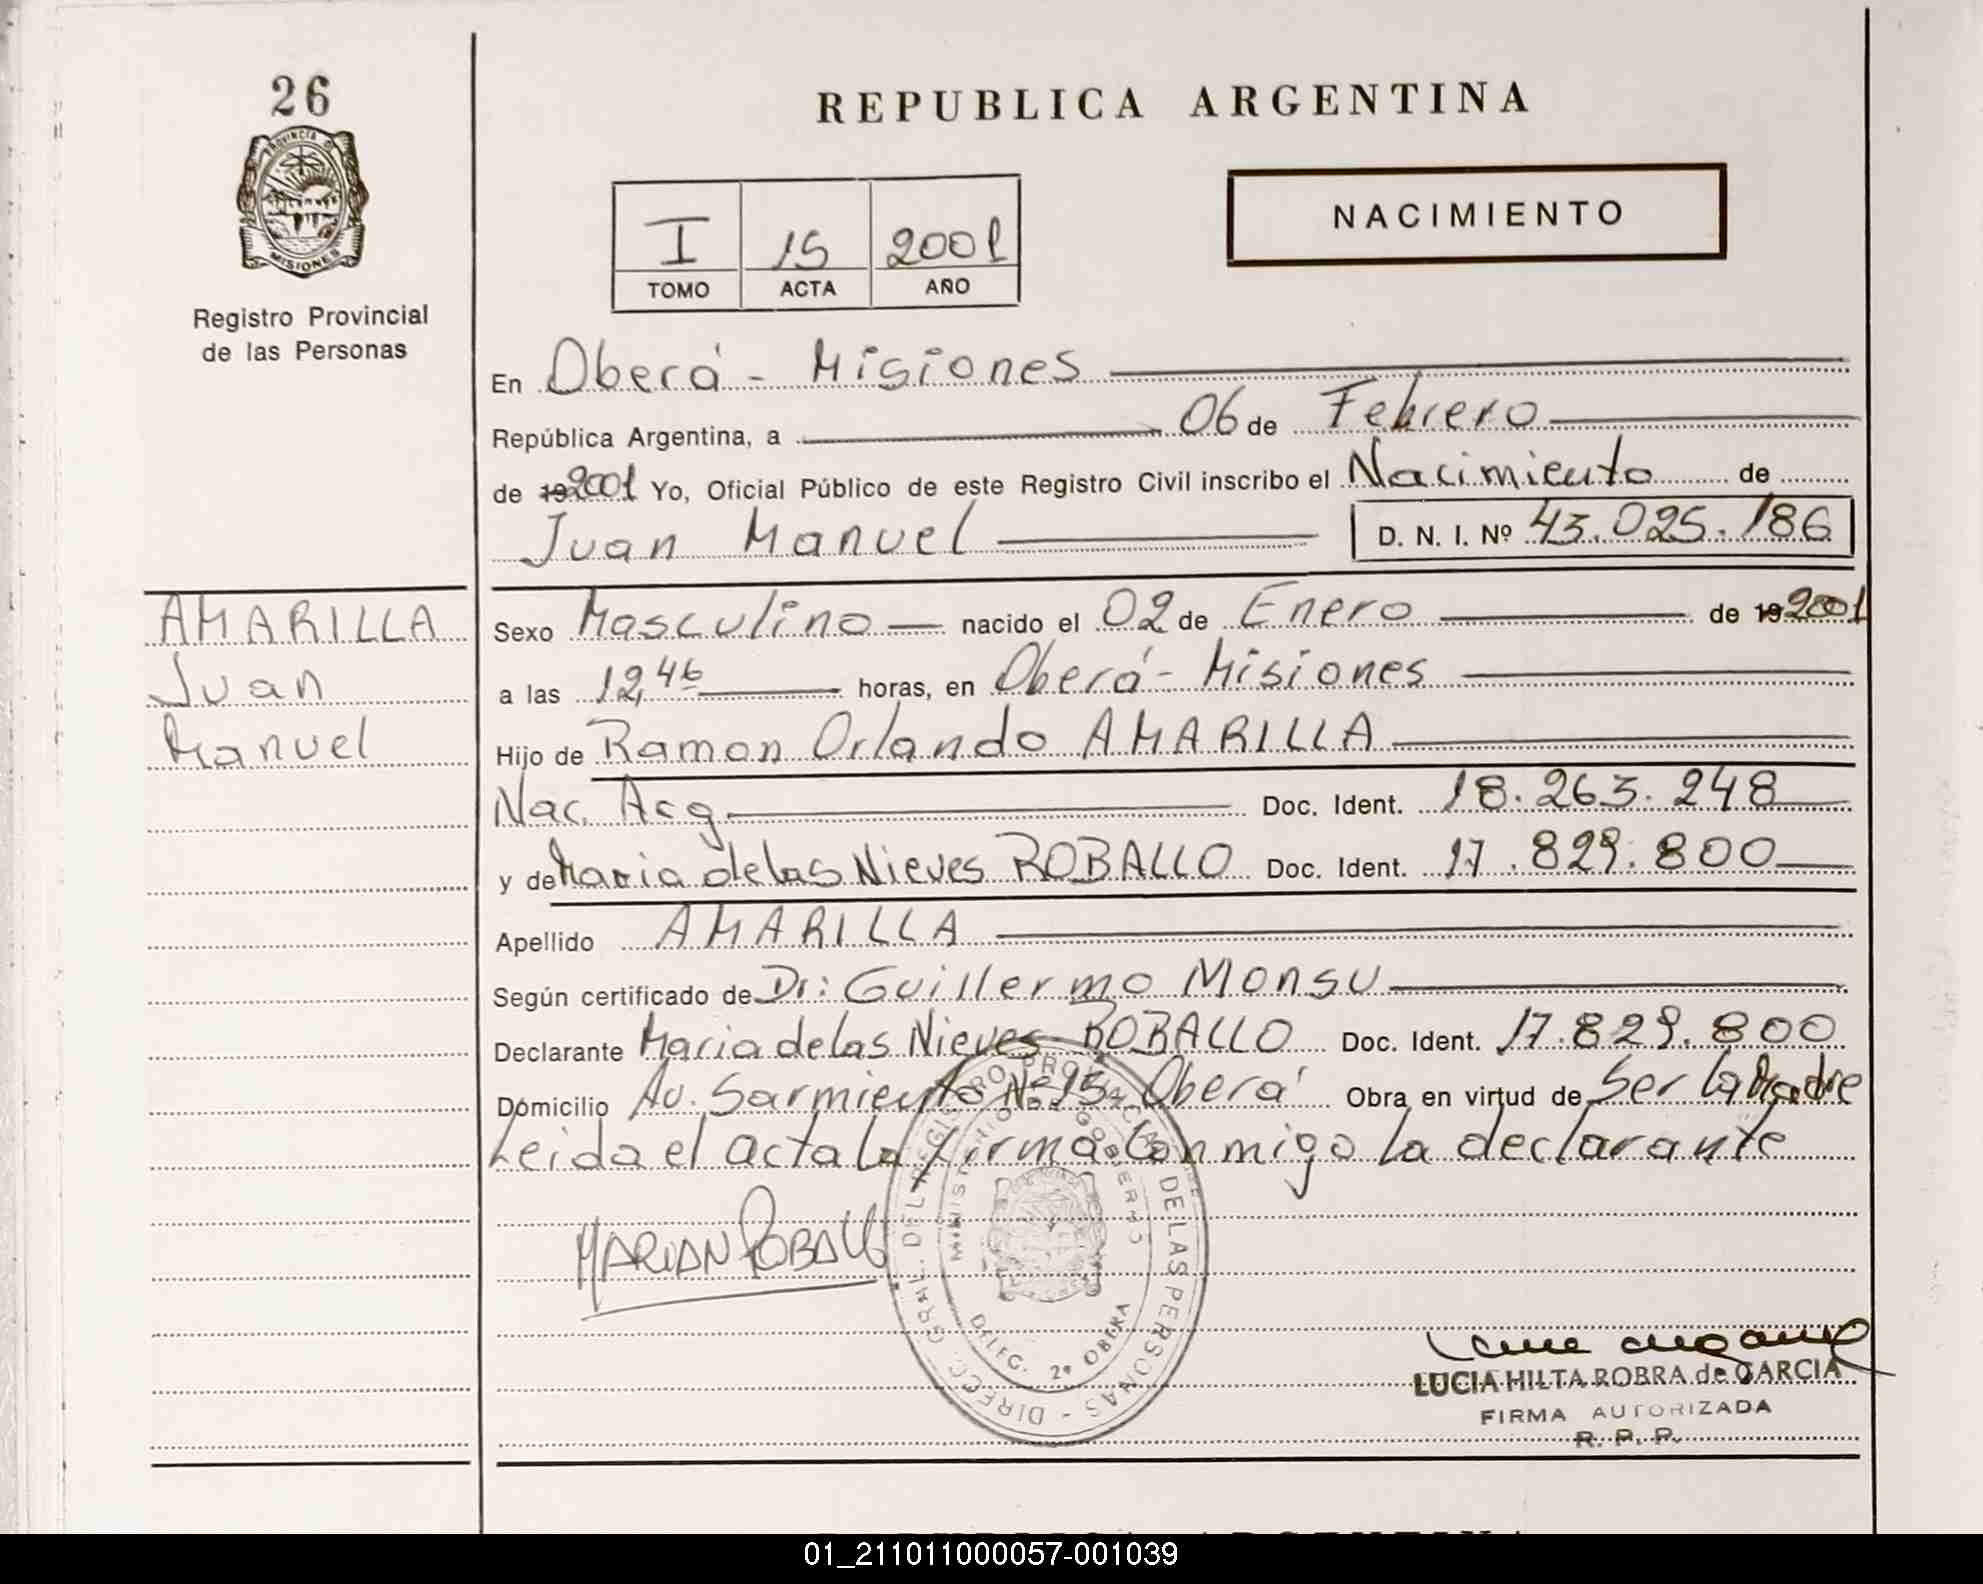 26
PROVINCIA DE
MISIONES
Registro Provincial
de las Personas
AMARILLA
Juan
Manuel
REPUBLICA ARGENTINA
I 15 2001
TOMO ACTA AÑO
NACIMIENTO
En Oberá - Misiones
República Argentina, a 06 de Febrero
de 19 2001 Yo, Oficial Público de este Registro Civil inscribo el Nacimiento de
Juan Manuel D. N. I. Nº 43.025.186
Sexo Masculino nacido el 02 de Enero de 19 2001
a las 12,46 horas, en Oberá - Misiones
Hijo de Ramon Orlando AMARILLA
Nac. Arg Doc. Ident. 18.263.248
y de Maria de las Nieves ROBALLO Doc. Ident. 17.829.800
Apellido AMARILLA
Según certificado de Dr: Guillermo Monsu
Declarante Maria de las Nieves ROBALLO Doc. Ident. 17.829.800
Domicilio Av. Sarmiento Nº 15 - Oberá Obra en virtud de Ser la Madre
Leida el acta la firma conmigo la declarante
MARIAN ROBALLO
DIREC. GRAL. DEL REGISTRO PROVINCIAL DE LAS PERSONAS -
MINISTERIO DE GOBIERNO
DELEG. 2ª OBERA
LUCIA HILTA ROBRA de GARCIA
FIRMA AUTORIZADA
R. P. P.
01_211011000057-001039